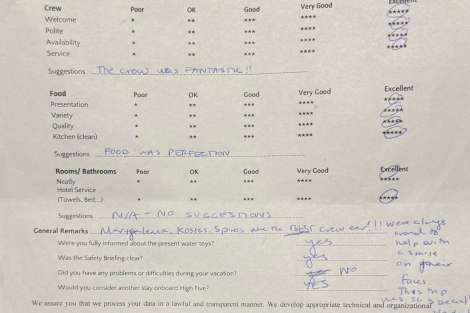 Crew Poor OK Good Very Good Excellent
Welcome * ** *** **** *****
Polite * ** *** **** *****
Availability * ** *** **** *****
Service * ** *** **** *****
Suggestions THE CREW WAS FANTASTIC!!
Food Poor OK Good Very Good Excellent
Presentation * ** *** **** *****
Variety * ** *** **** *****
Quality * ** *** **** *****
Kitchen (clean) * ** *** **** *****
Suggestions FOOD WAS PERFECTION
Rooms/ Bathrooms Poor OK Good Very Good Excellent
Neatly * ** *** **** *****
Hotel Service
(Towels, Bed...) * ** *** **** *****
Suggestions N/A - NO SUGGESTIONS
General Remarks Kostas, Spiros are the BEST crew ever!!! were always
Were you fully informed about the present water toys? yes
Was the Safety Briefing clear? yes
Did you have any problems or difficulties during your vacation? NO
Would you consider another stay onboard High Five? YES
help with
a smile
on their
face.
This trip
was so special!
We assure you that we process your data in a lawful and transparent manner. We develop appropriate technical and organizational